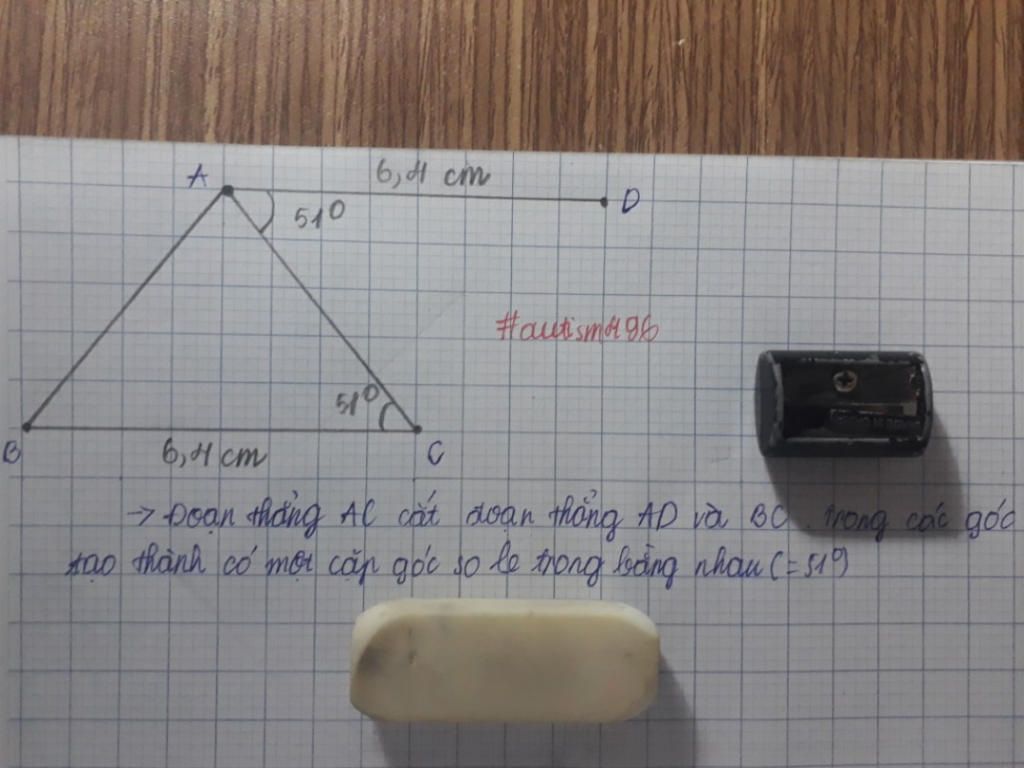 A 6,4 cm D
51°
#autism496
51°
B 6,4 cm C
→ Đoạn thẳng AC cắt đoạn thẳng AD và BC. trong các góc
tạo thành có một cặp góc so le trong bằng nhau (=51°)